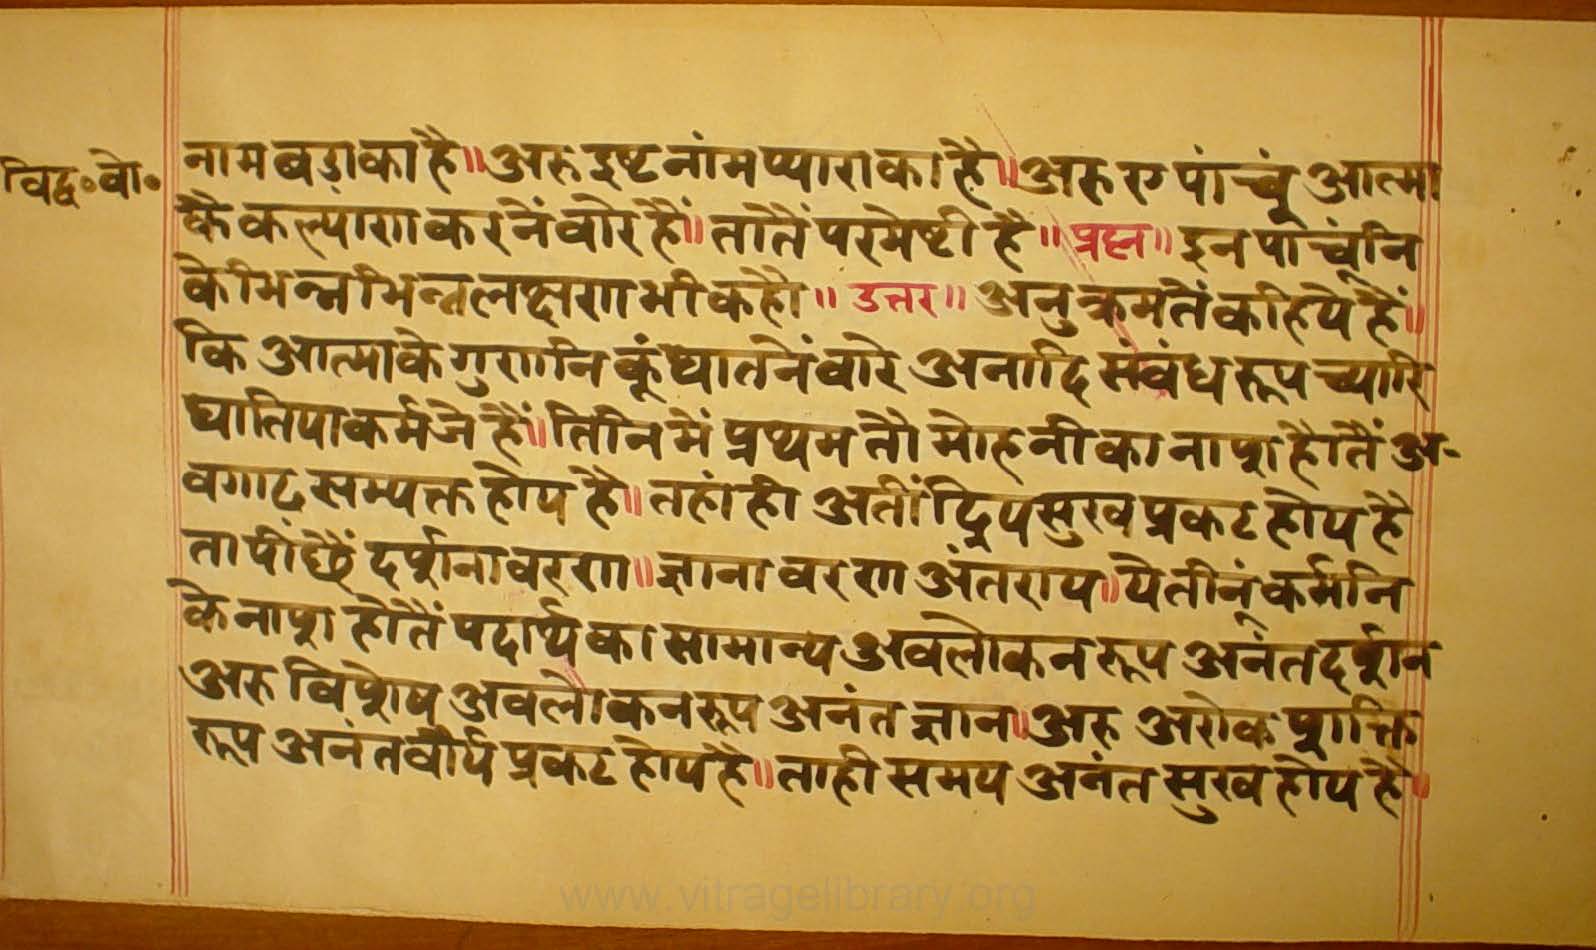 विद्व॰बो॰
नाम बड़ा का है॥ अरु इष्ट नांम प्यारा का है॥ अरु ए पांचूं आत्मा
कै कल्याण करनें वारे हैं॥ तातैं परमेष्टी है॥ प्रश्न॥ इन पांचूंनि
के भिन्न भिन्न लक्षण भी कहौ॥ उत्तर॥ अनुक्रमतें कहिये हैं॥
कि आत्मा के गुणनि कूं घातनें वारे अनादि संबंध रूप च्यारि
घातिया कर्म जे हैं॥ तिनि में प्रथम तौ मोहनी का नाश होतैं अ-
वगाढ सम्यक्त होय है॥ तहां ही अतींद्रिय सुख प्रकट होय है
ता पीछैं दर्शनावरण॥ ज्ञानावरण अंतराय॥ ये तीनूं कर्मनि
के नाश होतैं पदार्थ का सामान्य अवलोकन रूप अनंत दर्शन
अरु विशेष अवलोकन रूप अनंत ज्ञान॥ अरु अरोक शक्ति
रूप अनंत वीर्य प्रकट होय है॥ ताही समय अनंत सुख होय है॥
www.vitragelibrary.org